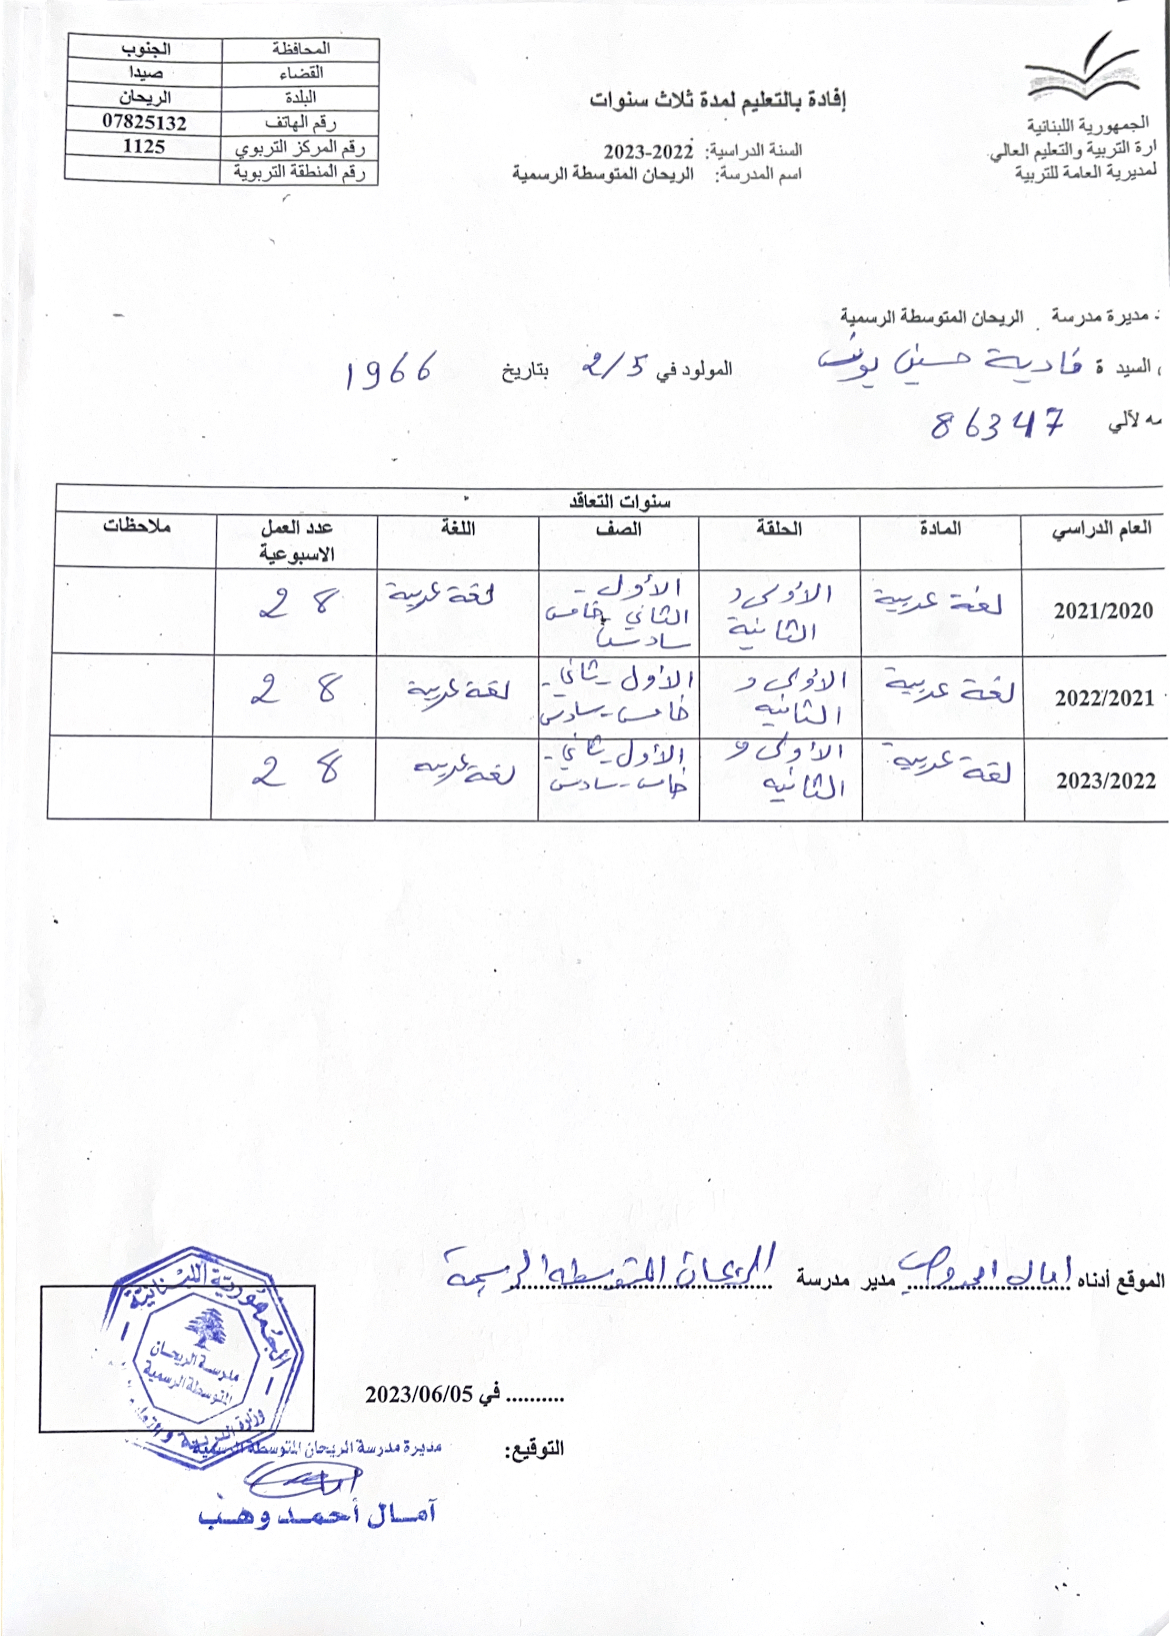 الجمهورية اللبنانية
ارة التربية والتعليم العالي
لمديرية العامة للتربية
إفادة بالتعليم لمدة ثلاث سنوات
السنة الدراسية: 2022-2023
اسم المدرسة: الريحان المتوسطة الرسمية
المحافظة الجنوب
القضاء صيدا
البلدة الريحان
رقم الهاتف 07825132
رقم المركز التربوي 1125
رقم المنطقة التربوية
مديرة مدرسة الريحان المتوسطة الرسمية
السيد ة فادية حسين يونس المولود في 2/5 بتاريخ 1966
لآلي 86347
سنوات التعاقد
العام الدراسي المادة الحلقة الصف اللغة عدد العمل الاسبوعية ملاحظات
2021/2020 لغة عربية الأولى و الثانية الأول - الثاني خامس سادس لغة عربية 28
2022/2021 لغة عربية الأولى و الثانيه الأول - ثاني - خامس - سادس لغة عربية 28
2023/2022 لغة عربية الأولى و الثانيه الأول - ثاني - خامس - سادس لغة عربيه 28
الموقع أدناه امال احمد وهب مدير مدرسة الريحان المتوسطة الرسمية
.......... في 2023/06/05
التوقيع:
مديرة مدرسة الريحان المتوسطة الرسمية
آمال أحمد وهب
الجمهورية اللبنانية
مدرسة الريحان
المتوسطة الرسمية
وزارة التربية و التعليم